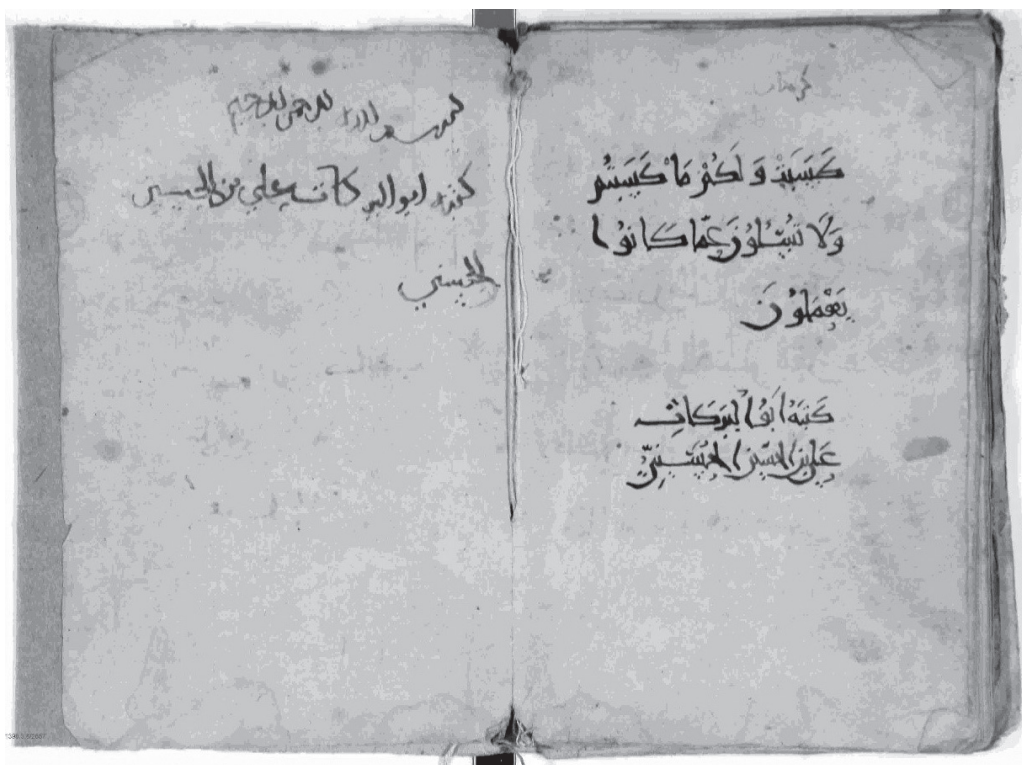 كَسَبَتْ وَلَكُمْ مَا كَسَبْتُمْ
وَلَا تُسْئَلُوْنَ عَمَّا كَانُوْا
يَعْمَلُوْنَ
كَتَبَهُ أَبُو الْبَرَكَاتِ
عَلِيُّ بْنُ الْحُسَيْنِ الْحُسَيْنِيّ
بسم الله الرحمن الرحيم
كتبه ابو البركات علي بن الحسين
الحسيني